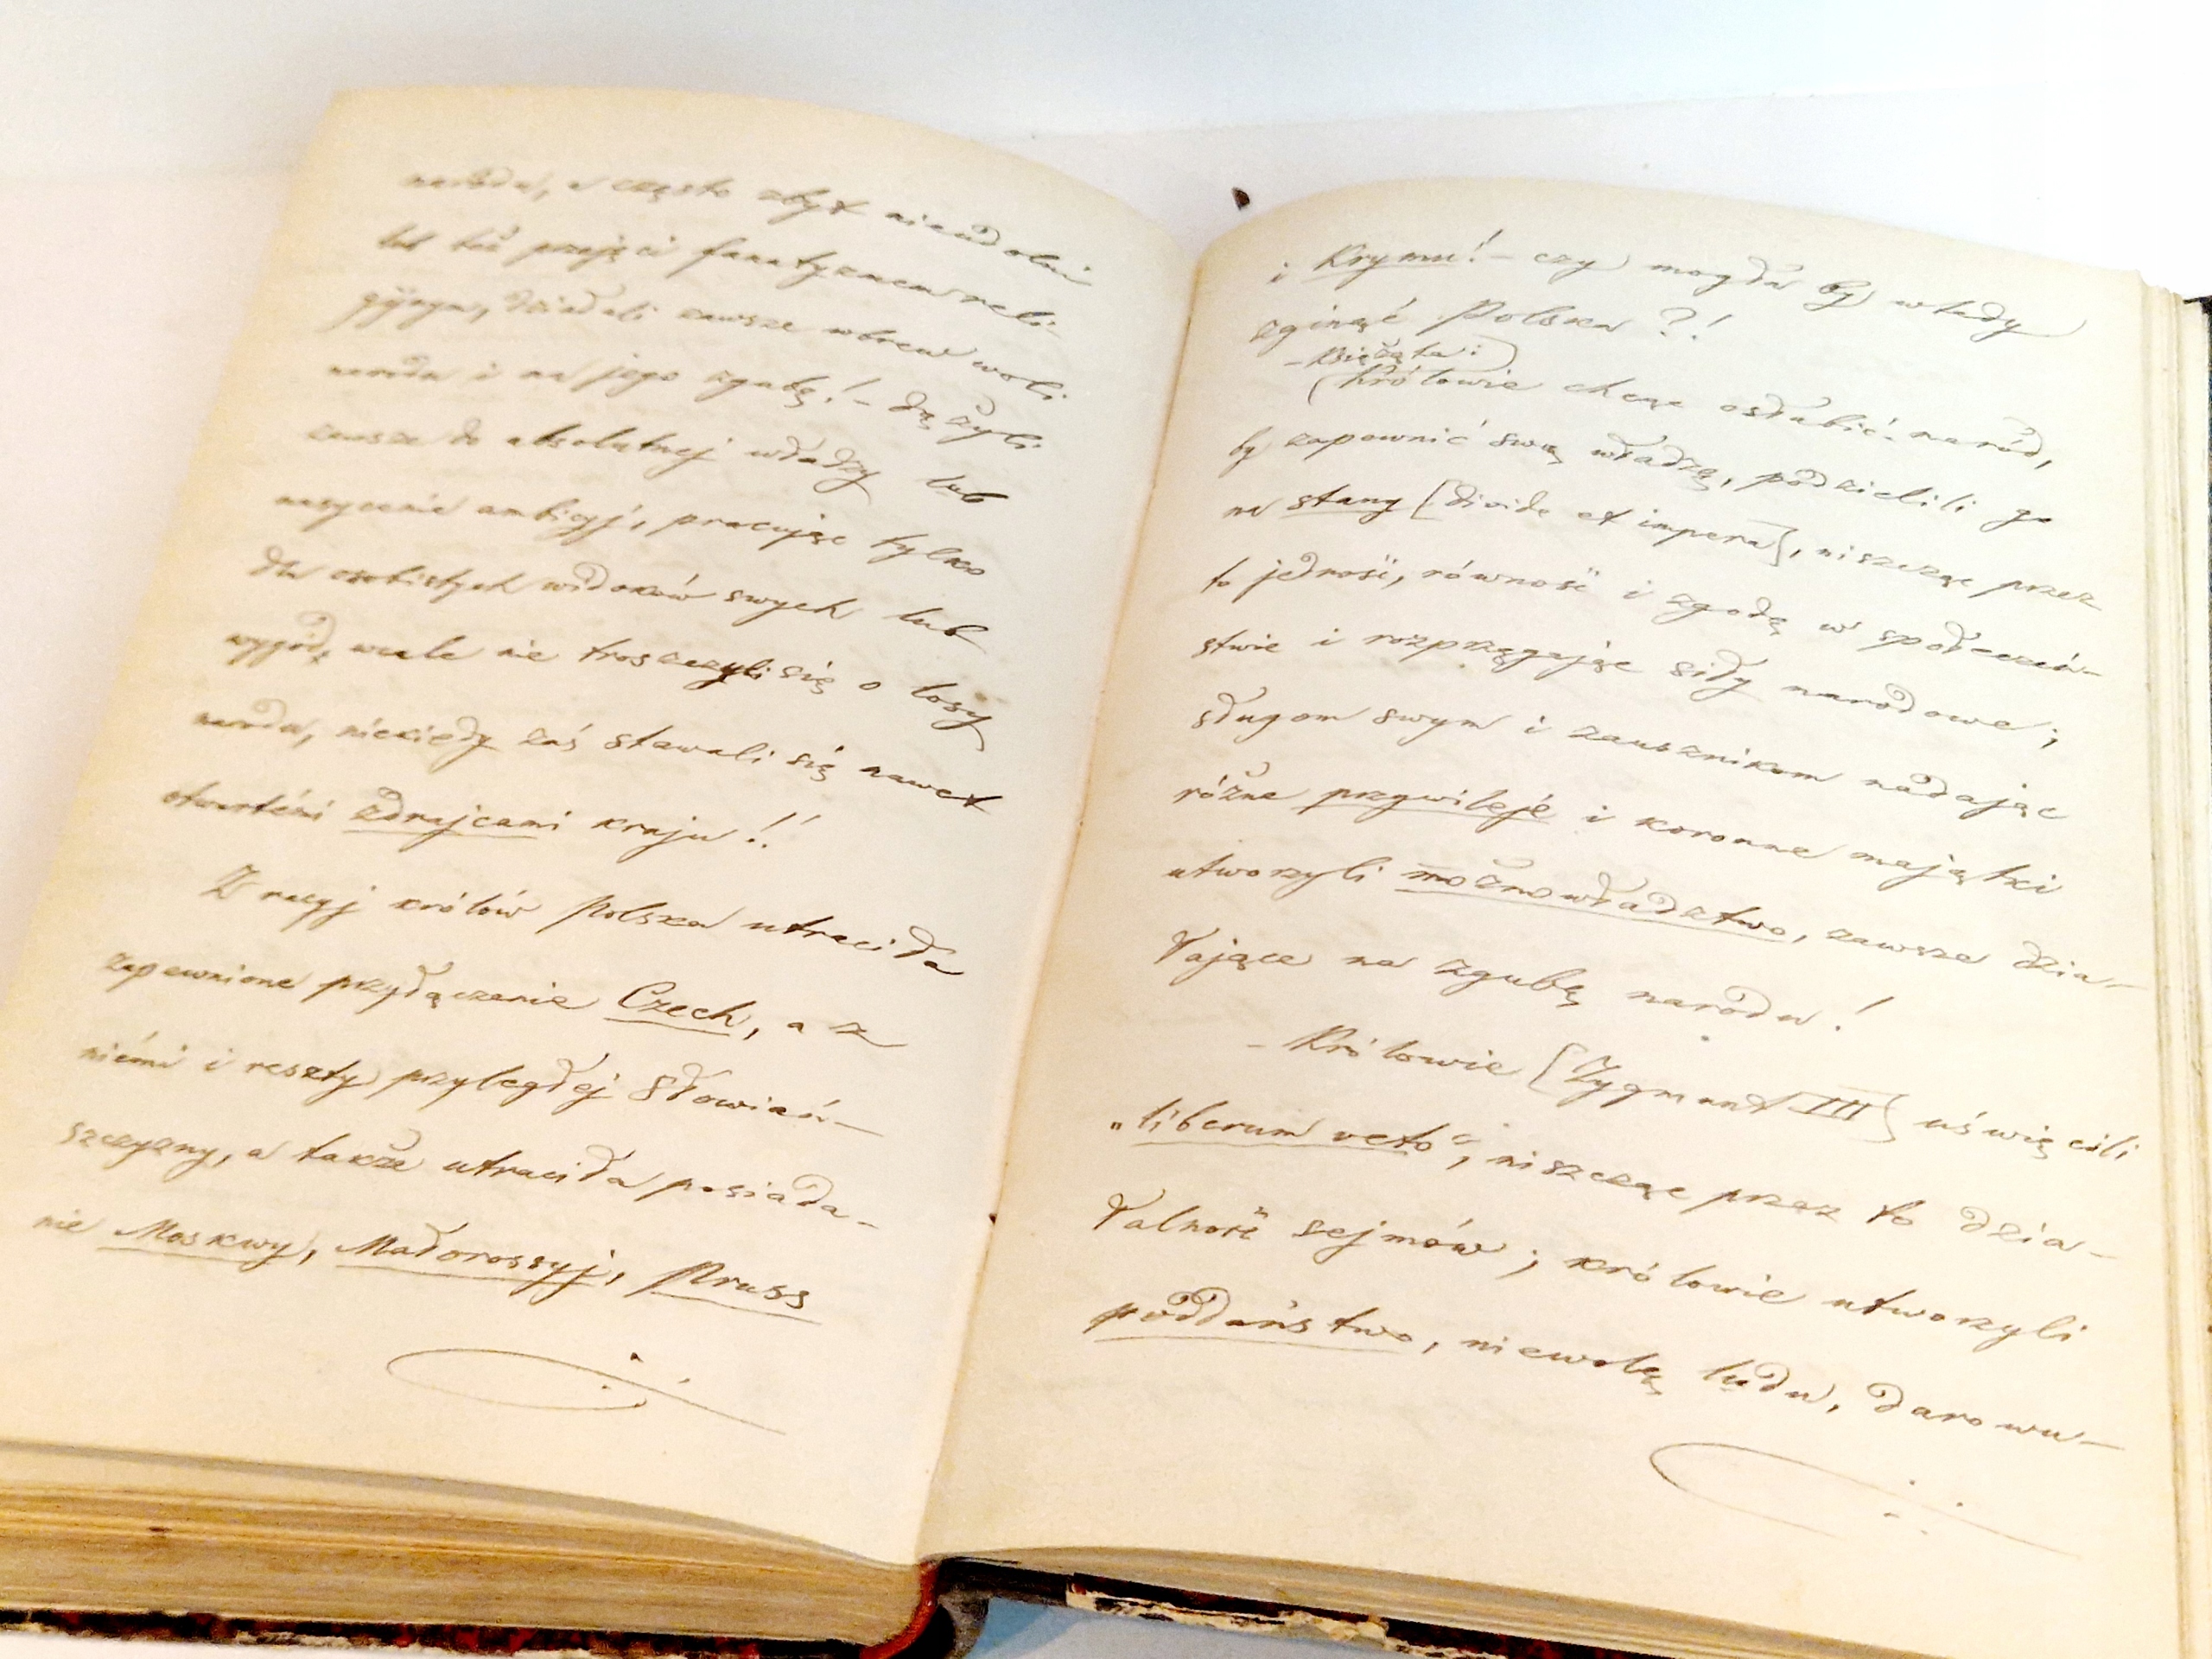 narodu, a często zbyt nieudolni
lub też przejęci fanatyzmem reli-
gijnym, działali zawsze wbrew woli
narodu i na jego zgubę! – dążyli
zawsze do absolutnej władzy lub
nasycenia ambicyj, pracując tylko
dla osobistych widoków swych lub
wygód, wcale nie troszczyli się o losy
narodu, niekiedy zaś stawali się nawet
otwartémi zdrajcami kraju!!
Z racyj królów Polska utraciła
zapewnione przyłączenie Czech, a z
niémi i reszty przyległej Słowiań-
szczyzny, a także utraciła posiada-
nie Moskwy, Małorossyj, Pruss
i Krymu! – czy mogła by wtedy
zginąć Polska ?!
– Książęta i
(Królowie chcąc osłabić naród,
by zapewnić swą władzę, podzielili go
na stany [divide et impera], niszcząc przez
to jedność, równość i zgodę w społeczeń-
stwie i rozprzęgając siły narodowe;
sługom swym i zausznikom nadając
różne przywileje i koronne majątki
utworzyli możnowładztwo, zawsze dzia-
łające na zgubę narodu!
– Królowie [Zygmunt III] uświęcili
„liberum veto“, niszcząc przez to dzia-
łalność sejmów; królowie utworzyli
poddaństwo, niewolę ludu, darowu-